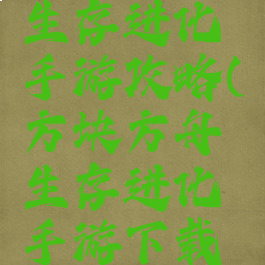 生存进化
手游攻略(
方块方舟
生存进化
手游下载